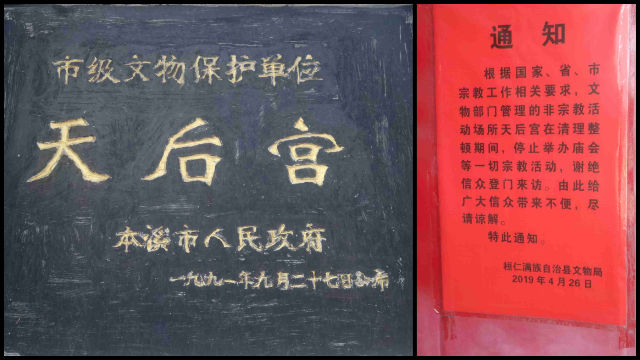 市级文物保护单位
天后宫
本溪市人民政府
一九九一年九月二十七日公布
通 知
根据国家、省、市
宗教工作相关要求，文
物部门管理的非宗教活
动场所天后宫在清理整
顿期间，停止举办庙会
等一切宗教活动，谢绝
信众登门来访。由此给
广大信众带来不便，尽
请谅解。
特此通知。
桓仁满族自治县文物局
2019年4月26日